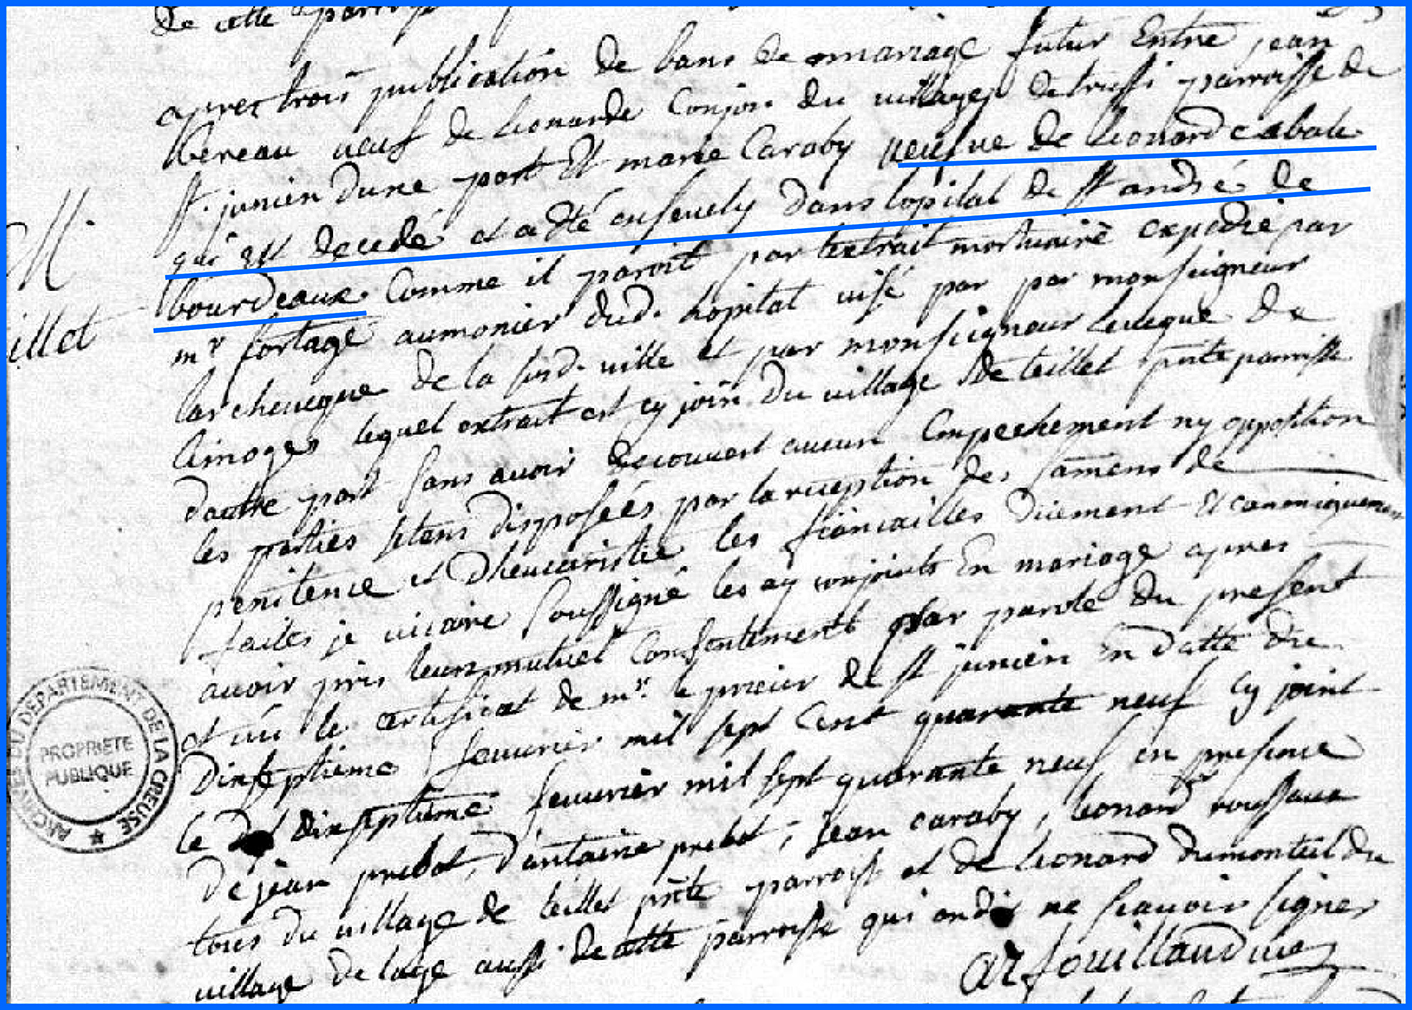 de cette
apres trois publication de bans de mariage futur Entre jean
bereau veuf de Leonarde Conjon du village de trussi parroisse de
st. junien dune part Et marie Caraby veufve de Leonard cabale
qui est decedé et a été ensevely dans lopital de st andré de
bourdeaux Comme il paroit par lextrait mortuaire expedié par
M.
mr fortage aumonier dud. hopital visé par par monseigneur
illet
larcheveque de la susd. ville et par monseigneur leveque de
Limoges lequel extrait est cy join du village de teillet pnte parroisse
dautre part sans avoir decouvert aucun Empechement ny opposition
les parties setans disposées par la reception des samens de
penitence et dheucaristie les fiancailles duement Et canoniquement
faites je vicaire soussigné les ay conjoints En mariage apres
avoir pris leurs mutuel Consentement par parole du present
et vu le certificat de mr. le prieur de st junien En datte du
dixseptieme fevvrier mil sept Cent quarante neuf cy joint
le dixseptieme fevvrier mil sept quarante neuf en presence
de jean prebot, d'antoine prebot, jean caraby, leonard roussaux
tous du village de teillet pnte parroisse et de Leonard dumonteil du
village de lage aussi de cette parroisse qui ondt ne scavoir signer
arfouillaud vic
ARCHIVES DU DEPARTEMENT DE LA CREUSE
PROPRIETE
PUBLIQUE